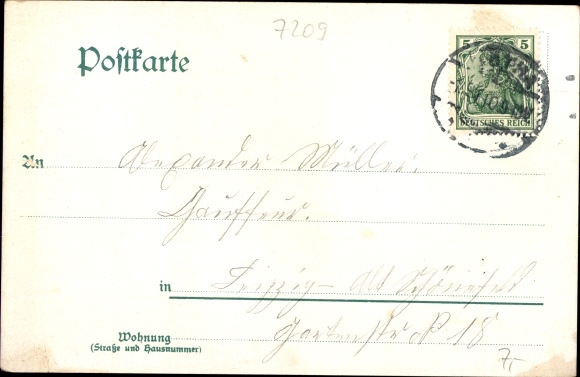 7209
Postkarte
5 5
DEUTSCHES REICH
An Alexander Müller.
Chauffeur.
in Leipzig - Alt Schönefeld
Wohnung
(Straße und Hausnummer)
Gartenstr 18
7,-